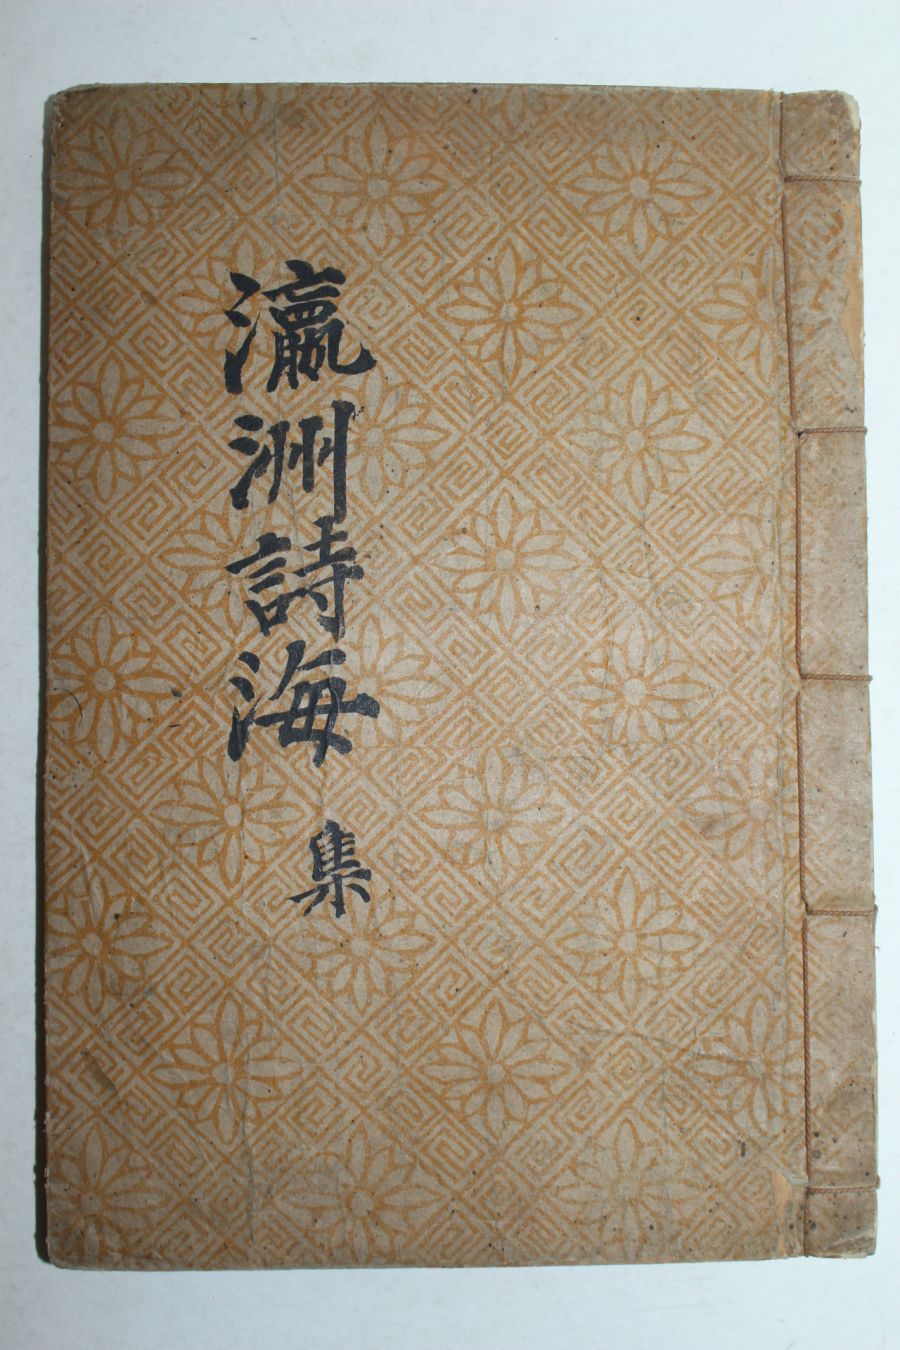 瀛洲詩海
集